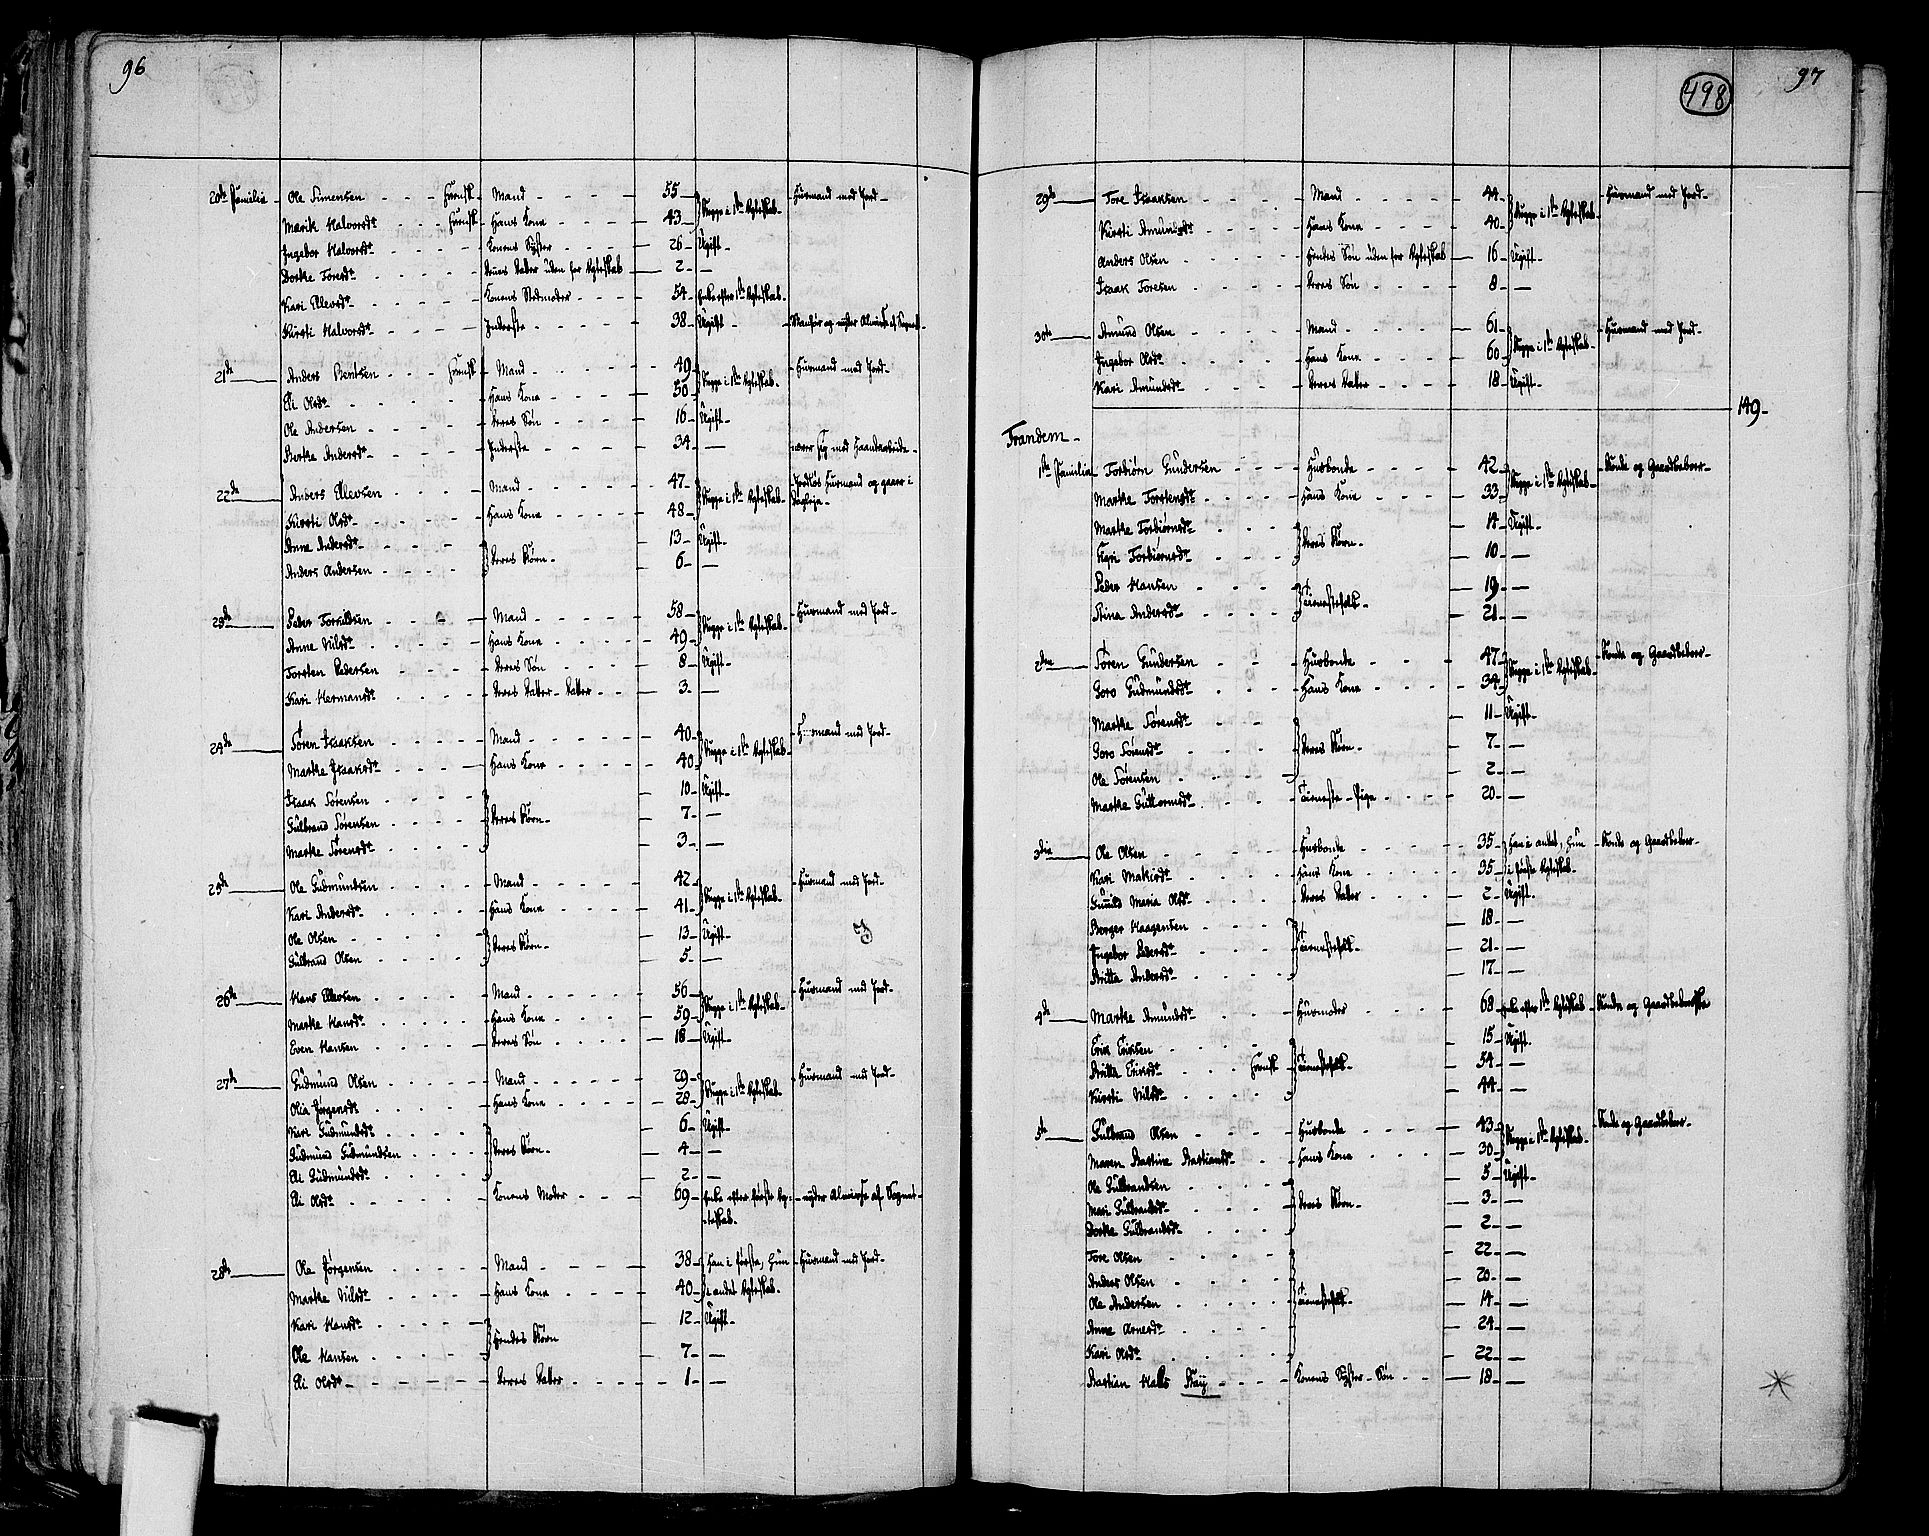 96
20de Familie - Ole Simensen - - - Finnsk - Mand - - - - 55 - Begge i 1ste Ægteskab - Huusmand med Jord -
Marik Halvorsdr - - - Finnsk - Hans Kone - - - 43 -
Ingebor Halvorsdr - - - - Konens Syster - - - 26 - Ugift -
Dorte Toresdr - - - - Denes Datter uden for Ægteskab - 2 - —
Kari Ellevsdr - - - - Konens Stedmoder - - - 54 - Enke efter 1ste Ægteskab -
Kirsti Halvorsdr - - - - Inderste - - - - 38 - Ugift - - Vanfør og nyder Almisse af Sognet -
21de — Anders Bentsen - - - Finnsk - Mand - - - - 49 - Begge i 1ste Ægteskab - Huusmand med Jord -
Eli Olsdr - - - - Hans Kone - - - 50 -
Ole Andersen - - - - Deres Søn - - - 16 - Ugift -
Berthe Andersdr - - - - Inderste - - - 34 - — - nærer sig med Haandarbeide -
22de — Anders Ellevsen - - - - Mand - - - - 47 - Begge i 1ste Ægteskab - Jordløs Huusmand og gaaer i
Dagleje -
Kirsti Olsdr - - - - Hans Kone - - - 48 -
Anne Andersdr - - - - Deres Børn - 13 - Ugift -
Anders Andersen - - - - 6 - —
23de — Peder Torkildsen - - - Mand - - - - 58 - Begge i 1ste Ægteskab - Huusmand med Jord -
Anne Nilsdr - - - - Hans Kone - - - 49 -
Torsten Pedersen - - - - Deres Søn - - - 8 - Ugift -
Kari Hermansdr - - - - Deres Datter-Datter - - 3 - —
24de — Søren Isaaksen - - - - Mand - - - - 40 - Begge i 1ste Ægteskab - Huusmand med Jord -
Marthe Isaaksdr - - - - Hans Kone - - - 40 -
Isaak Sørensen - - - - Deres Børn - 10 - Ugift -
Gulbrand Sørensen - - - - 7 - —
Marthe Sørensdr - - - - 3 - —
25de — Ole Gudmundsen - - - - Mand - - - - 42 - Begge i 1ste Ægteskab - Huusmand med Jord -
Kari Andersdr - - - - Hans Kone - - - 41 -
Ole Olsen - - - - Deres Børn - 13 - Ugift -
Gulbrand Olsen - - - - 5 - —
26de — Hans Ellevsen - - - - Mand - - - - 56 - Begge i 1ste Ægteskab - Huusmand med Jord -
Marthe Hansdr - - - - Hans Kone - - - 59 -
Even Hansen - - - - Deres Søn - - - 18 - Ugift -
27de — Gudmund Olsen - - - - Mand - - - - 29 - Begge i 1ste Ægteskab - Huusmand med Jord -
Olia Jørgensdr - - - - Hans Kone - - - 28 -
Kari Gudmundsdr - - - - Deres Børn - 6 - Ugift -
Gudmund Gudmundsen - - - - 4 - —
Eli Gudmundsdr - - - - 2 - —
Eli Olsdr - - - - Konens Moder - - - 69 - Enke efter første Æg- - nyder Almisse af Sognet -
-teskab -
28de — Ole Jørgensen - - - - Mand - - - - 38 - Han i første, Hun - Huusmand med Jord -
Marthe Nilsdr - - - - Hans Kone - - - 40 - i andet Ægteskab -
Kari Hansdr - - - - Hendes Børn 12 - Ugift -
Ole Hansen - - - - 7 - —
Eli Olsdr - - - - Deres Datter - - - 1 - —
498
97
29de — Tore Isaaksen - - - - Mand - - - - 44 - Begge i 1ste Ægteskab - Huusmand med Jord -
Kirsti Amundsdr - - - - Hans Kone - - - 40 -
Anders Olsen - - - - Hendes Søn uden for Ægteskab - 16 - Ugift -
Isaak Toresen - - - - Deres Søn - - - 8 - —
30te — Amund Olsen - - - - Mand - - - - 61 - Begge i 1ste Ægteskab - Huusmand med Jord -
Ingebor Olsdr - - - - Hans Kone - - - 60 -
Kari Amundsdr - - - - Deres Datter - - - 18 - Ugift -
149 -
Trandem -
1ste Familie - Torbiørn Gundersen - - - - Husbonde - - - - 42 - Begge i 1ste Ægteskab - Bonde og Gaardbeboer -
Marthe Torstensdr - - - - Hans Kone - - - 33 -
Marthe Torbiørnsdr - - - - Deres Børn - 14 - Ugift -
Kari Torbiørnsdr - - - - 10 - —
Peder Hansen - - - - Tienestefolk - 19 - —
Stina Andersdr - - - - 21 - —
2den — Søren Gundersen - - - - Husbonde - - - - 47 - Begge i 1ste Ægteskab - Bonde og Gaardbeboer -
Goro Gudmundsdr - - - - Hans Kone - - - 34 -
Marthe Sørensdr - - - - Deres Børn - 11 - Ugift -
Goro Sørensdr - - - - 7 - —
Ole Sørensen - - - - 2 - —
Marthe Guttormsdr - - - - Tieneste-Pige - - - 20 - —
3die — Ole Olsen - - - - Husbonde - - - - 35 - Han i andet, Hun - Bonde og Gaardbeboer -
Kari Mathisdr - - - - Hans Kone - - - 35 - i første Ægteskab -
Gunild Maria Olsdr - - - - Deres Datter - - - 2 - Ugift -
Borger Haagensen - - - - Tienestefolk - 18 - —
Ingebor Pedersdr - - - - 21 - —
Britta Andersdr - - - - 17 - —
4de — Marthe Amundsdr - - - - Husmoder - - - - 68 - Enke efter 1ste Ægteskab - Bonde og Gaardbeboerske
Erik Eriksen - - - - Tienestefolk - 15 - Ugift -
Britta Eriksdr - - - Finnsk 54 - —
Kirsti Nilsdr - - - - 44 - —
5te — Gulbrand Olsen - - - - Husbonde - - - - 43 - Begge i 1ste Ægteskab - Bonde og Gaardbeboer -
Maren Bastine Bastiansdr - - Hans Kone - - - 30 -
Ole Gulbrandsen - - - - Deres Børn - 5 - Ugift -
Mari Gulbrandsdr - - - - 3 - —
Dorthe Gulbrandsdr - - - - 2 - —
Tore Olsen - - - - Tienestefolk - 22 - —
Anders Olsen - - - - 20 - —
Ole Andersen - - - - 14 - —
Anne Arnesdr - - - - 24 - —
Kari Olsdr - - - - 22 - —
Bastian Halls Bay - - - - Konens Syster-Søn - - 18 - —